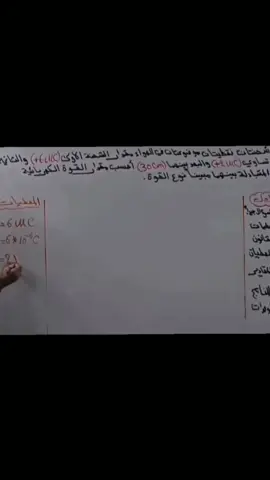 شحنتان نقطيتان موضوعتان في الهواء مقدار الشحنة الأولى (+6MC) والثانية
تساوي (+2MC) والبعد بينهما (30cm) أحسب مقدار القوة الكهربائية
المتبادلة بينهما مبينا نوع القوة.
المعطيات
=6MC
=6*10⁻⁶C
=2
قانون
الناتج